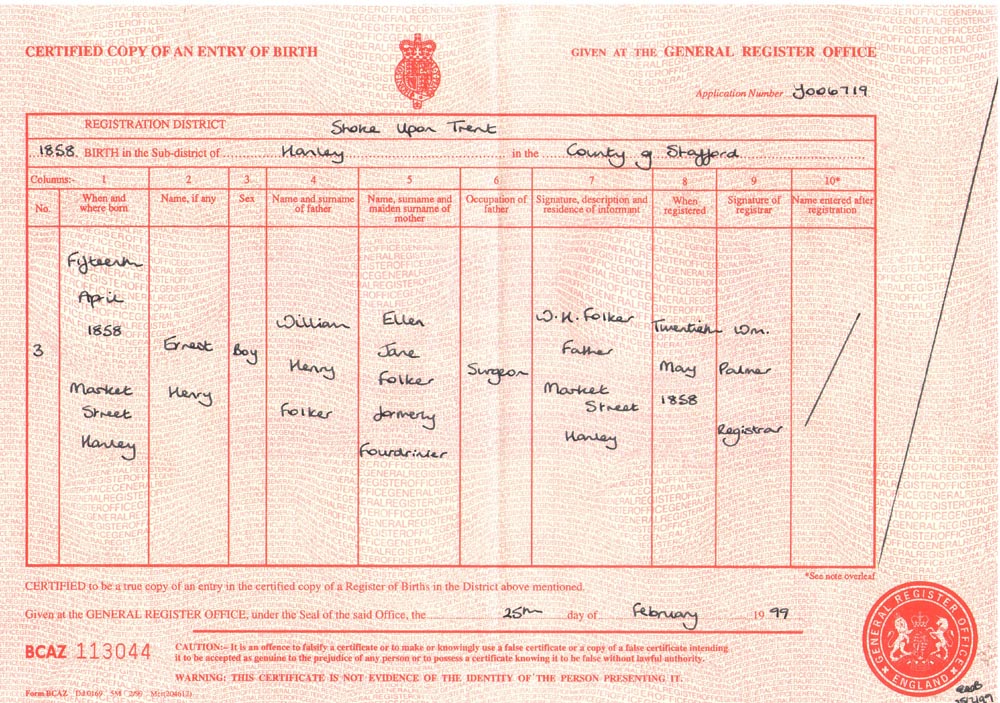 CERTIFIED COPY OF AN ENTRY OF BIRTH
GIVEN AT THE GENERAL REGISTER OFFICE
Application Number Y006719
REGISTRATION DISTRICT Stoke Upon Trent
1858. BIRTH in the Sub-district of Hanley in the County of Stafford
Columns:- 1 2 3 4 5 6 7 8 9 10*
No.
When and
where born
Name, if any
Sex
Name and surname
of father
Name, surname and
maiden surname of
mother
Occupation of
father
Signature, description and
residence of informant
When
registered
Signature of
registrar
Name entered after
registration
3
Fifteenth
April
1858
Market
Street
Hanley
Ernest
Henry
Boy
William
Henry
Folker
Ellen
Jane
Folker
formerly
Fourdrinier
Surgeon
W. H. Folker
Father
Market
Street
Hanley
Twentieth
May
1858
Wm.
Palmer
Registrar
*See note overleaf
CERTIFIED to be a true copy of an entry in the certified copy of a Register of Births in the District above mentioned.
Given at the GENERAL REGISTER OFFICE, under the Seal of the said Office, the 25th day of February 1999
BCAZ 113044
CAUTION:– It is an offence to falsify a certificate or to make or knowingly use a false certificate or a copy of a false certificate intending
it to be accepted as genuine to the prejudice of any person or to possess a certificate knowing it to be false without lawful authority.
WARNING: THIS CERTIFICATE IS NOT EVIDENCE OF THE IDENTITY OF THE PERSON PRESENTING IT.
Form BCAZ
GENERAL REGISTER OFFICE
ENGLAND